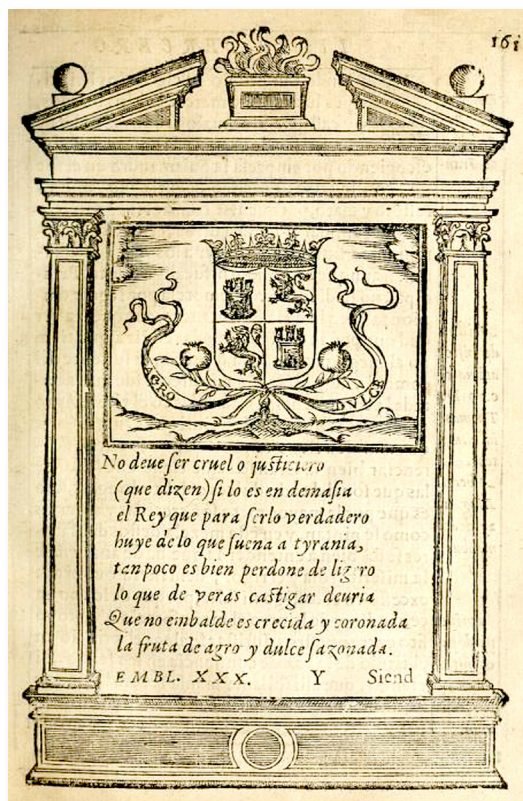 161
AGRO DVLCE
No deue ſer cruel o juſticiero
(que dizen) ſi lo es en demaſia
el Rey que para ſerlo verdadero
huye de lo que ſuena a tyrania,
tanpoco es bien perdone de ligero
lo que de veras caſtigar deuria
Que no embalde es crecida y coronada
la fruta de agro y dulce ſazonada.
EMBL. XXX. Y Siend